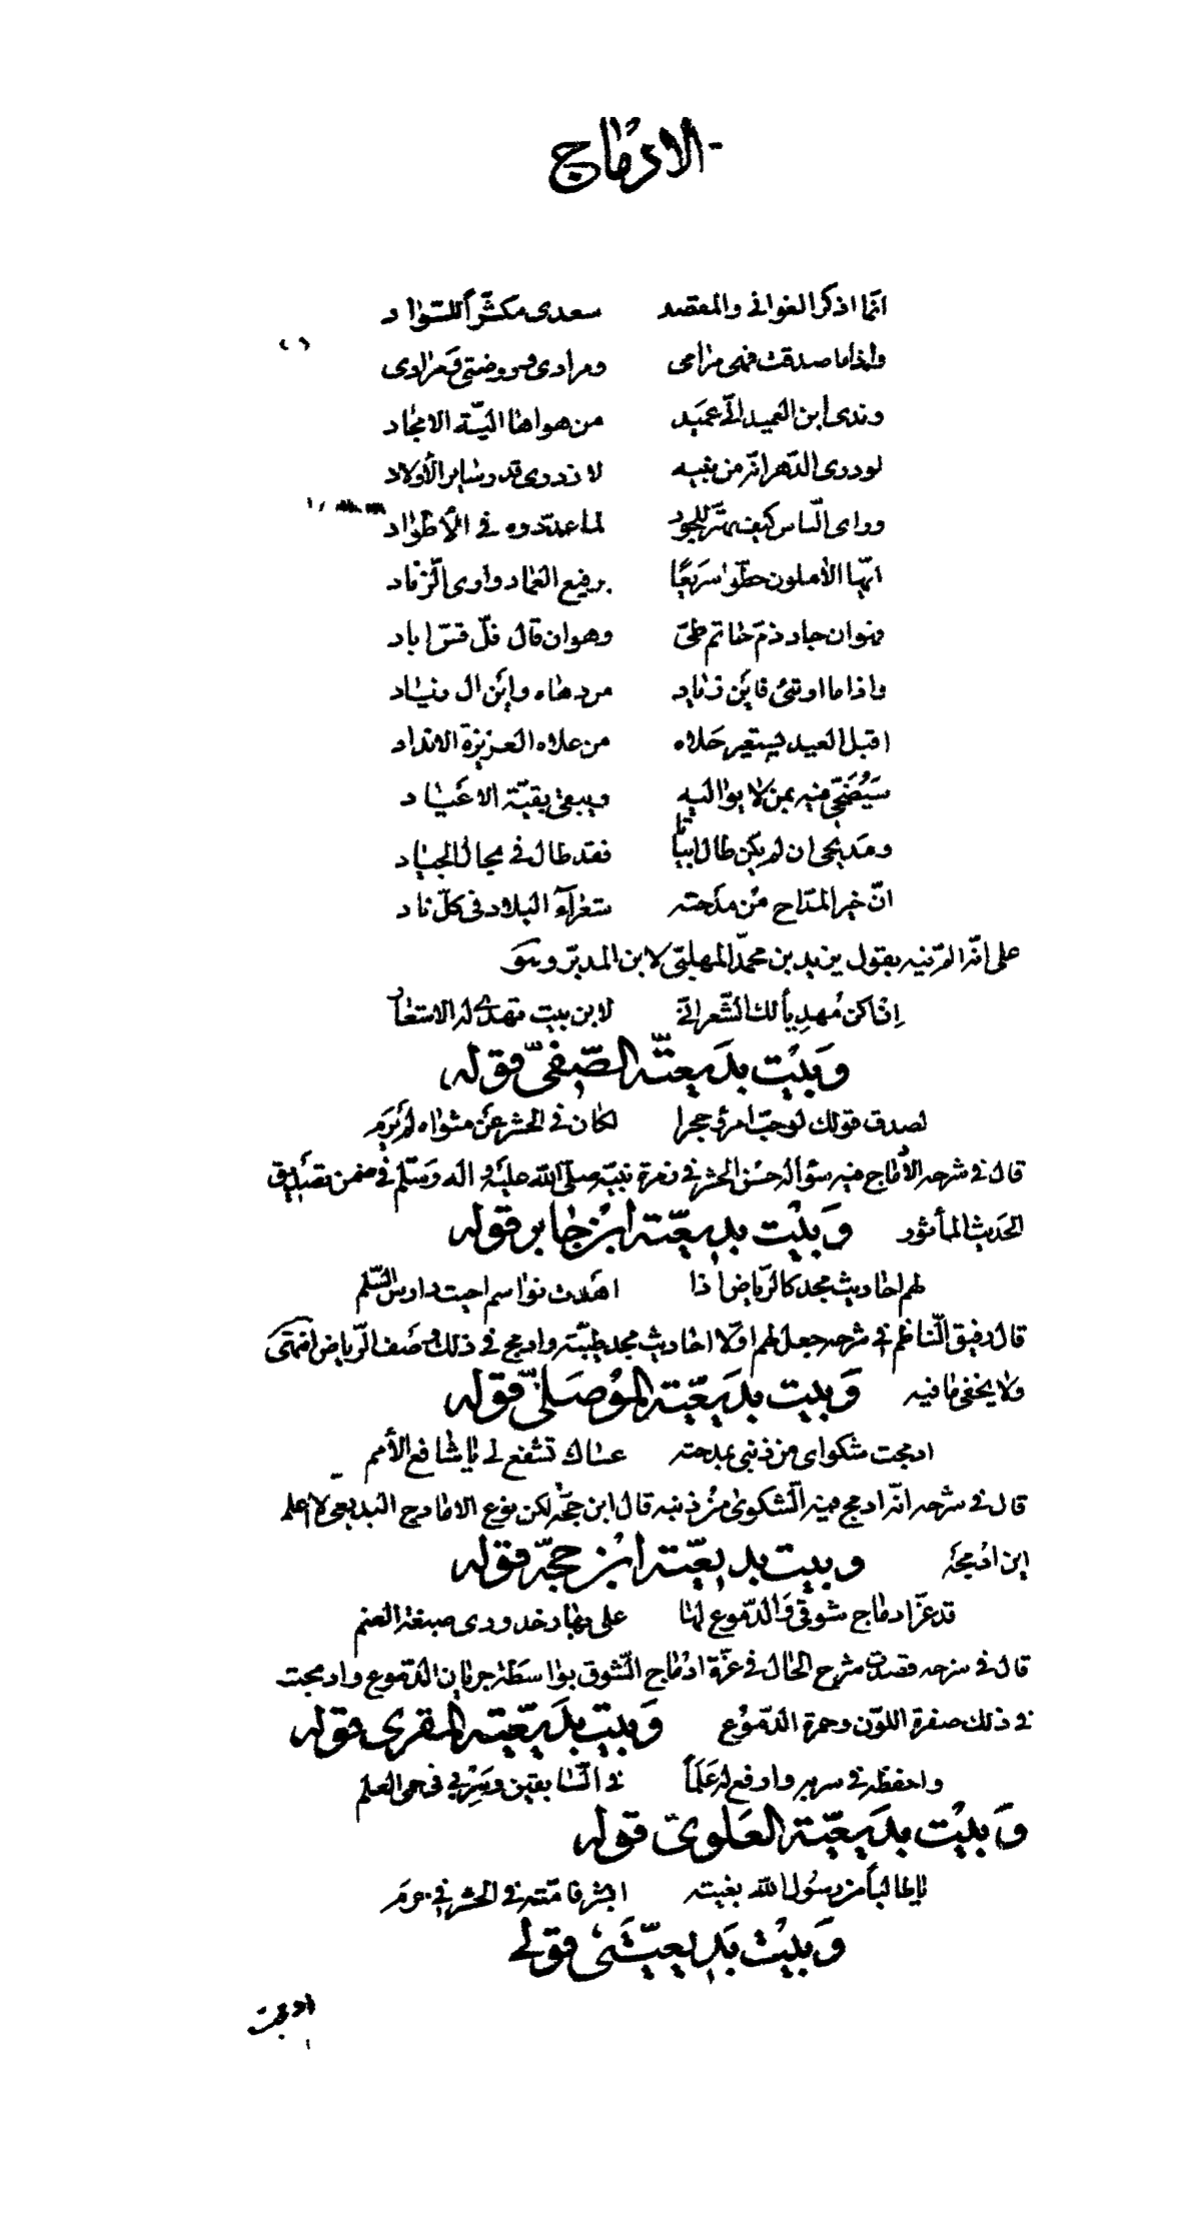 الادماج
انما اذكر الغوانى والمقصد سعدى مكثرا للسواد
واذا ما صدقت فهى مرامى ومرادى وروضتى ومرادى
وندى ابن العميد انى عميد من هواها الية الامجاد
لو درى الدهر انه من بنيه لازدرى قدر سائر الأولاد
وراى الناس كيف يهتز للجود لما عددوه فى الأطواد
ايها الآملون حطوا سريعا برفيع العماد وارى الزناد
فهو ان جاد ذم حاتم طى وهو ان قال فل قس اياد
واذا ما ارتئى فاين زياد من دهاه واين ال زياد
اقبل العيد يستعير حلاه من علاه العزيزة الانداد
سيضحى فيه بمن لا يواليه ويبقى بقية الاعياد
ومديحى ان لم يكن طال ابياتا فقد طال فى مجال الجياد
ان خير المداح من مدحته شعراء البلاد فى كل ناد
على انه الم فيه بقول يزيد بن محمد المهلبى لابن المدبر وهو
ان اكن مهديا لك الشعر انى لابن بيت تهدى له الاشعار
وبيت بديعية الصفى قوله
لصدق قولك لو حب امرؤ حجرا لكان فى الحشر عن مثواه لم يرم
قال فى شرحه الادماج فيه سؤاله حسن الحشر فى زمرة نبيه صلى الله عليه واله وسلم فى ضمن تصديق
الحديث المأثور وبيت بديعية ابن جابر قوله
لهم احاديث مجد كالرياض اذا اهدت نواسم احيت دارس النسم
قال رفيق الناظم فى شرحه جعل لهم اولا احاديث مجد طيبة وادمج فى ذلك وصف الرياض انتهى
ولا يخفى ما فيه وبيت بديعية الموصلى قوله
ادمجت شكواى من ذنبى بمدحته عساك تشفع لى يا شافع الأمم
قال فى شرحه انه ادمج فيه الشكوى من ذنبه قال ابن حجة لكن نوع الادماج البديعى لا اعلم
اين ادمجه وبيت بديعية ابن حجة قوله
قد عز ادماج شوقى والدموع لها على بهار خدودى صبغة العنم
قال فى شرحه قصدت شرح الحال فى عزة ادماج الشوق بواسطة جريان الدموع وادمجت
فى ذلك صفرة اللون وحمرة الدموع وبيت بديعية المقرى قوله
واحفظه فى سربه وارفع له علما فى السابقين وسر بى فى حمى العلم
وبيت بديعية العلوى قوله
يا طالبا من رسول الله بغيته ابشر فامته فى الحشر فى حرم
وبيت بديعيتى قولى
ادمجت